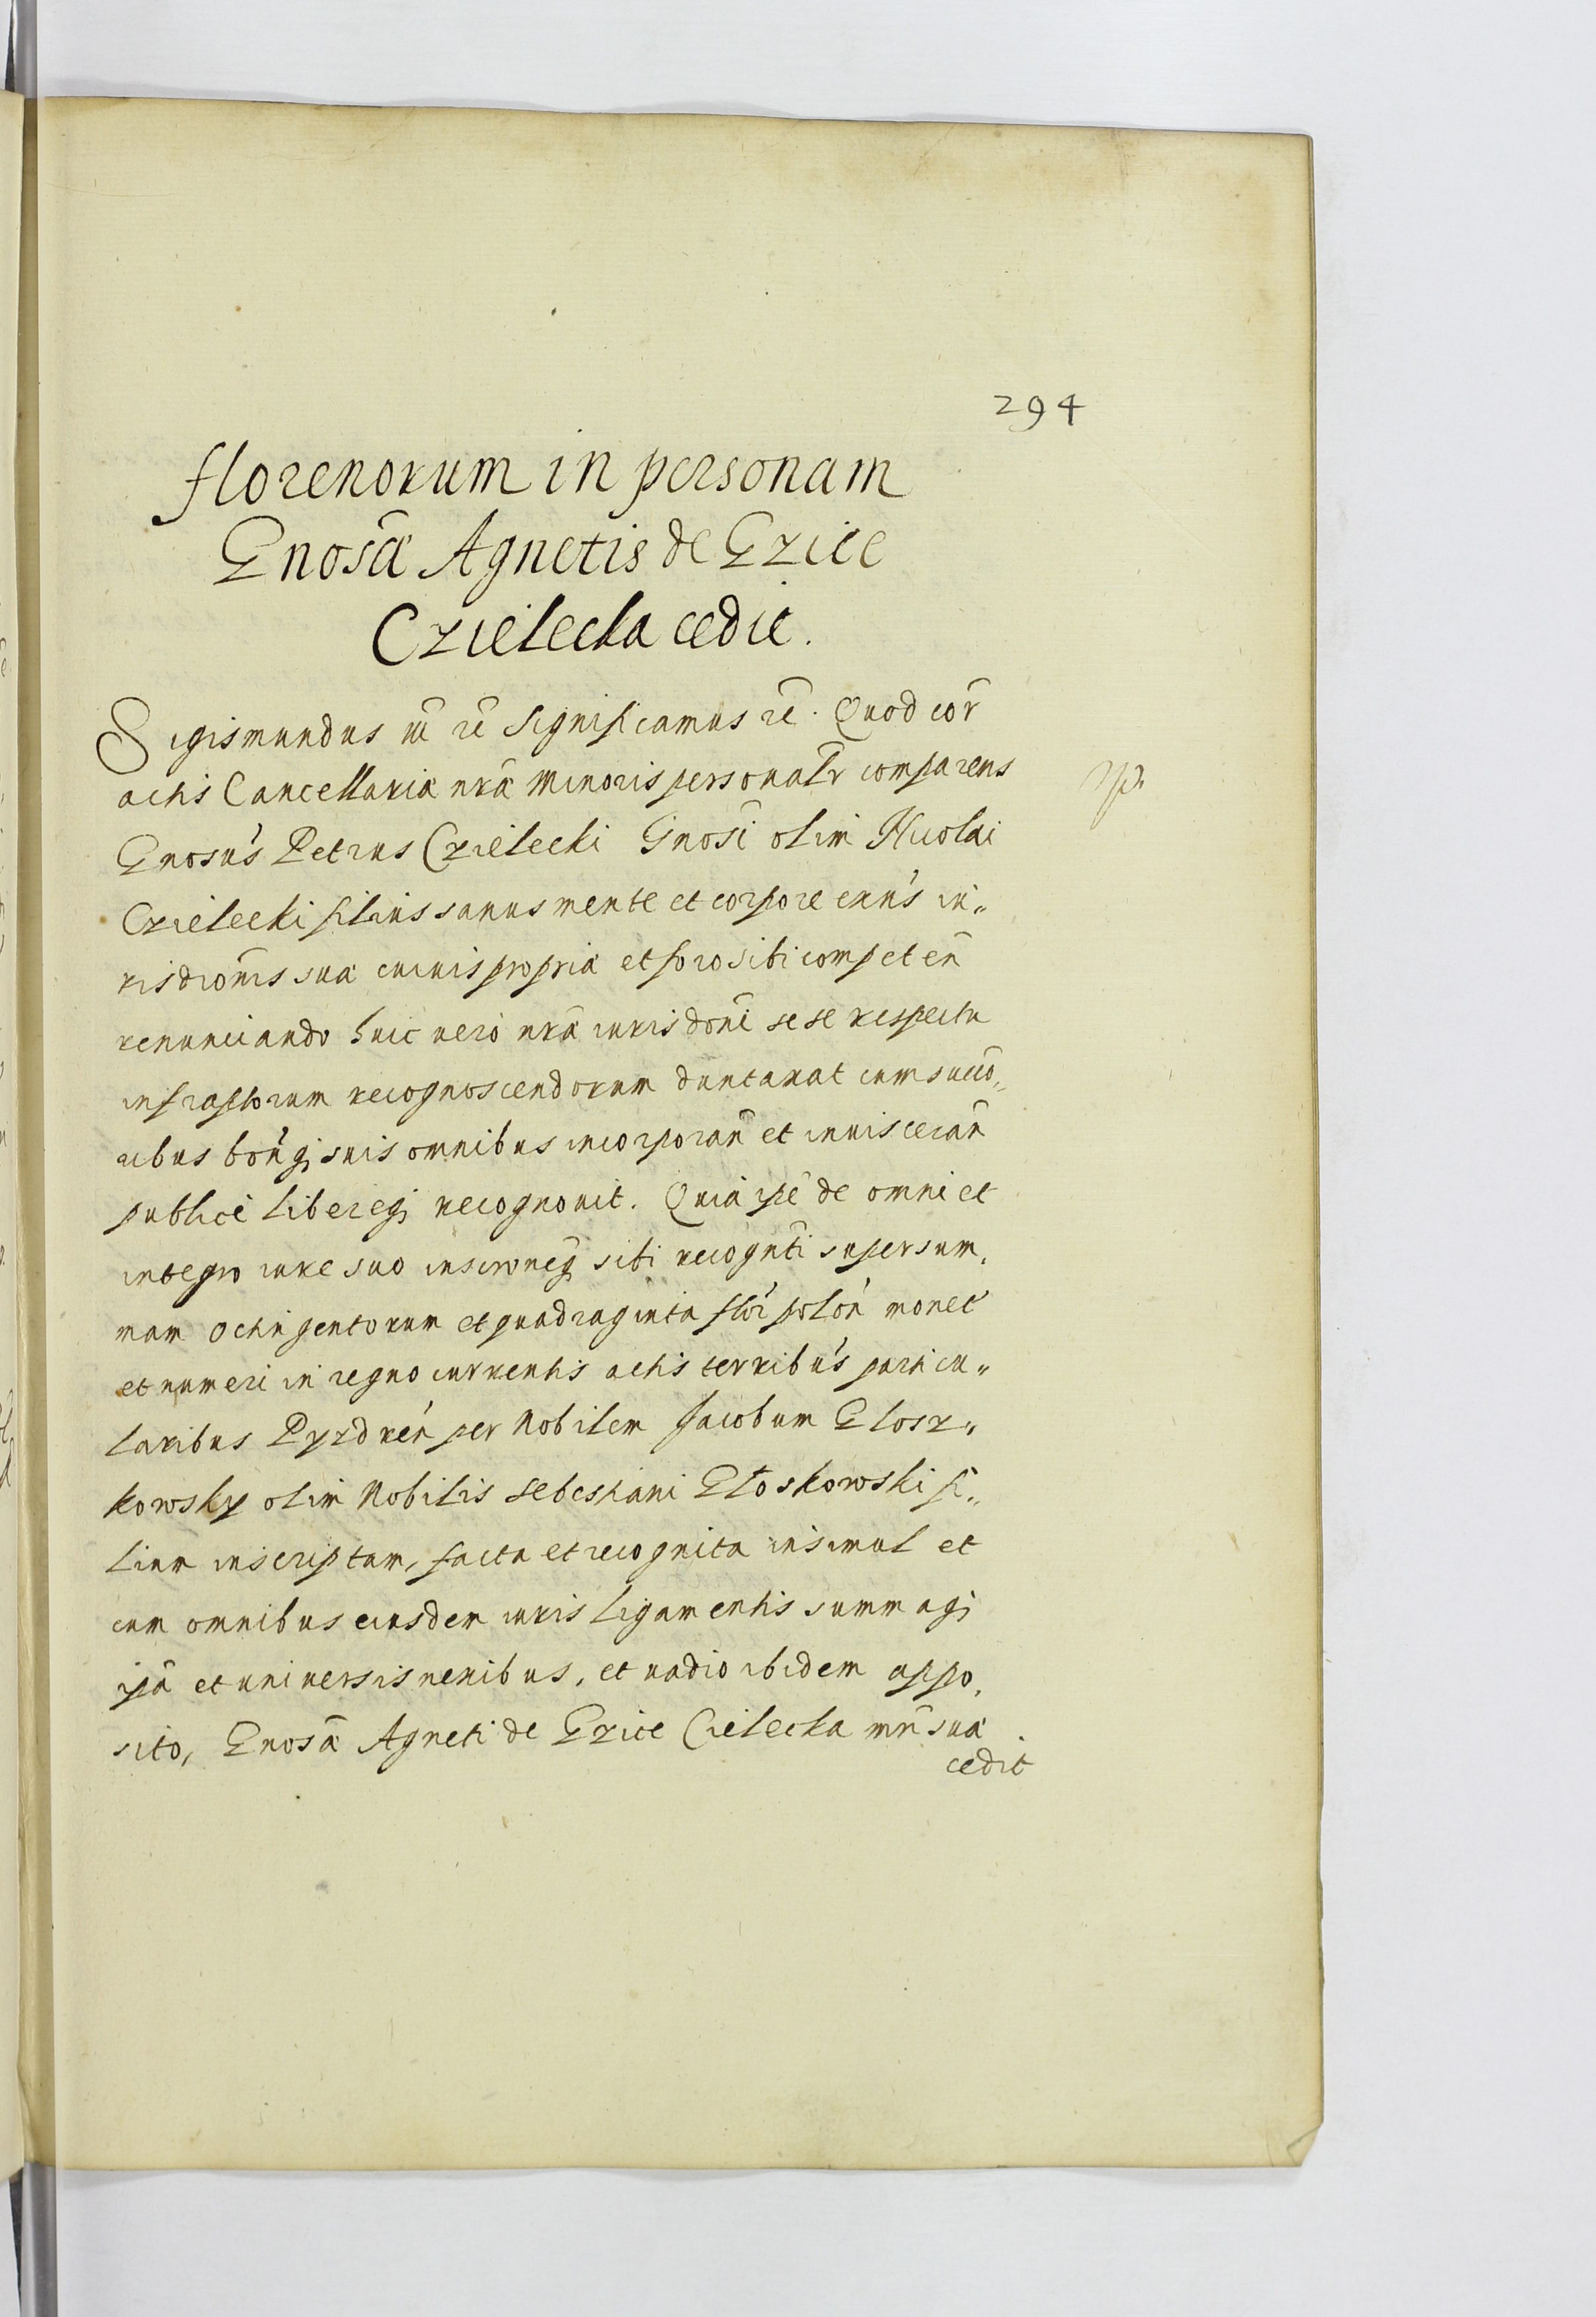 294
florenorum in personam
Gnosã Agnetis de Gzice
Czielecka cedit.
Sigismundus iii rẽ significamus rẽ. Quod cor̃
actis Cancellariæ nrã Minoris personalr̃ comparens
Gnosus Petrus Czielecki Gnosi olim Nicolai
Czielecki filius sanus mente et corpore exñs iu„
risdiõnis suã cuiuis propriã et foro sibi competeñ
renunciando huic vero nrã iurisdoni sese respectu
infraptorum recognoscendorum duntaxat cum succo„
ribus bonq; suis omnibus incorporañ et inuisceran̄
publicè liberèq; recognouit. Quia ipẽ de omni et
integro iure suo inscroneq; sibi recognti super sum„
mam octingentorum et quadraginta flor̃ polon̄ monet
et numeri in regno currentis actis terribus particu„
laribus Pyzdren̄ per Nobilem Jacobum Glosz„
kowsky olim Nobilis Sebestiani Głoskowski fi„
lium inscriptam, facta et recognita insimul et
cum omnibus eiusdem iuris ligamentis summaq;
ipã et universis nexibus, et vadio ibidem appo„
sito, Gnosã Agneti de Gzice Cielecka mr̃i suã
cedit